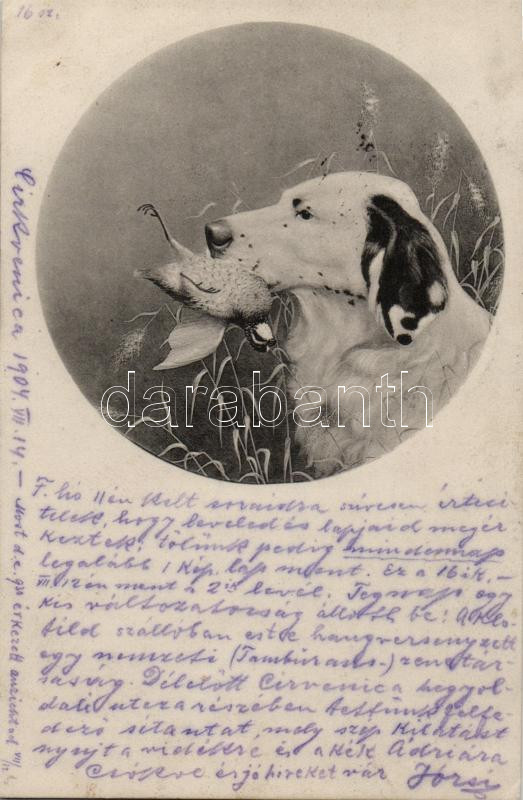 16 sz.
Cirkvenica 1904. VII. 14. —
darabanth.com
F. hó 11én kelt soraidra szivesen értesi
telek, hogy leveled és lapjaid megér
keztek; tőlünk pedig mindennap
legalább 1 kép. lap ment. Ez a 16ik. —
VII. 12én ment a 2ik levél. Tegnap egy
kis változatosság állott be: A Klo
tild szállóban este hangversenyzett
egy nemzeti (Tamburas-) zenetár-
saság. Délelőtt Cirvenica hegyol-
dali utcza részében tettünk felfe-
dező sétautat, mely szép kilátást
nyujt a vidékre és a kék Adriára
Csókol és jó hireket vár